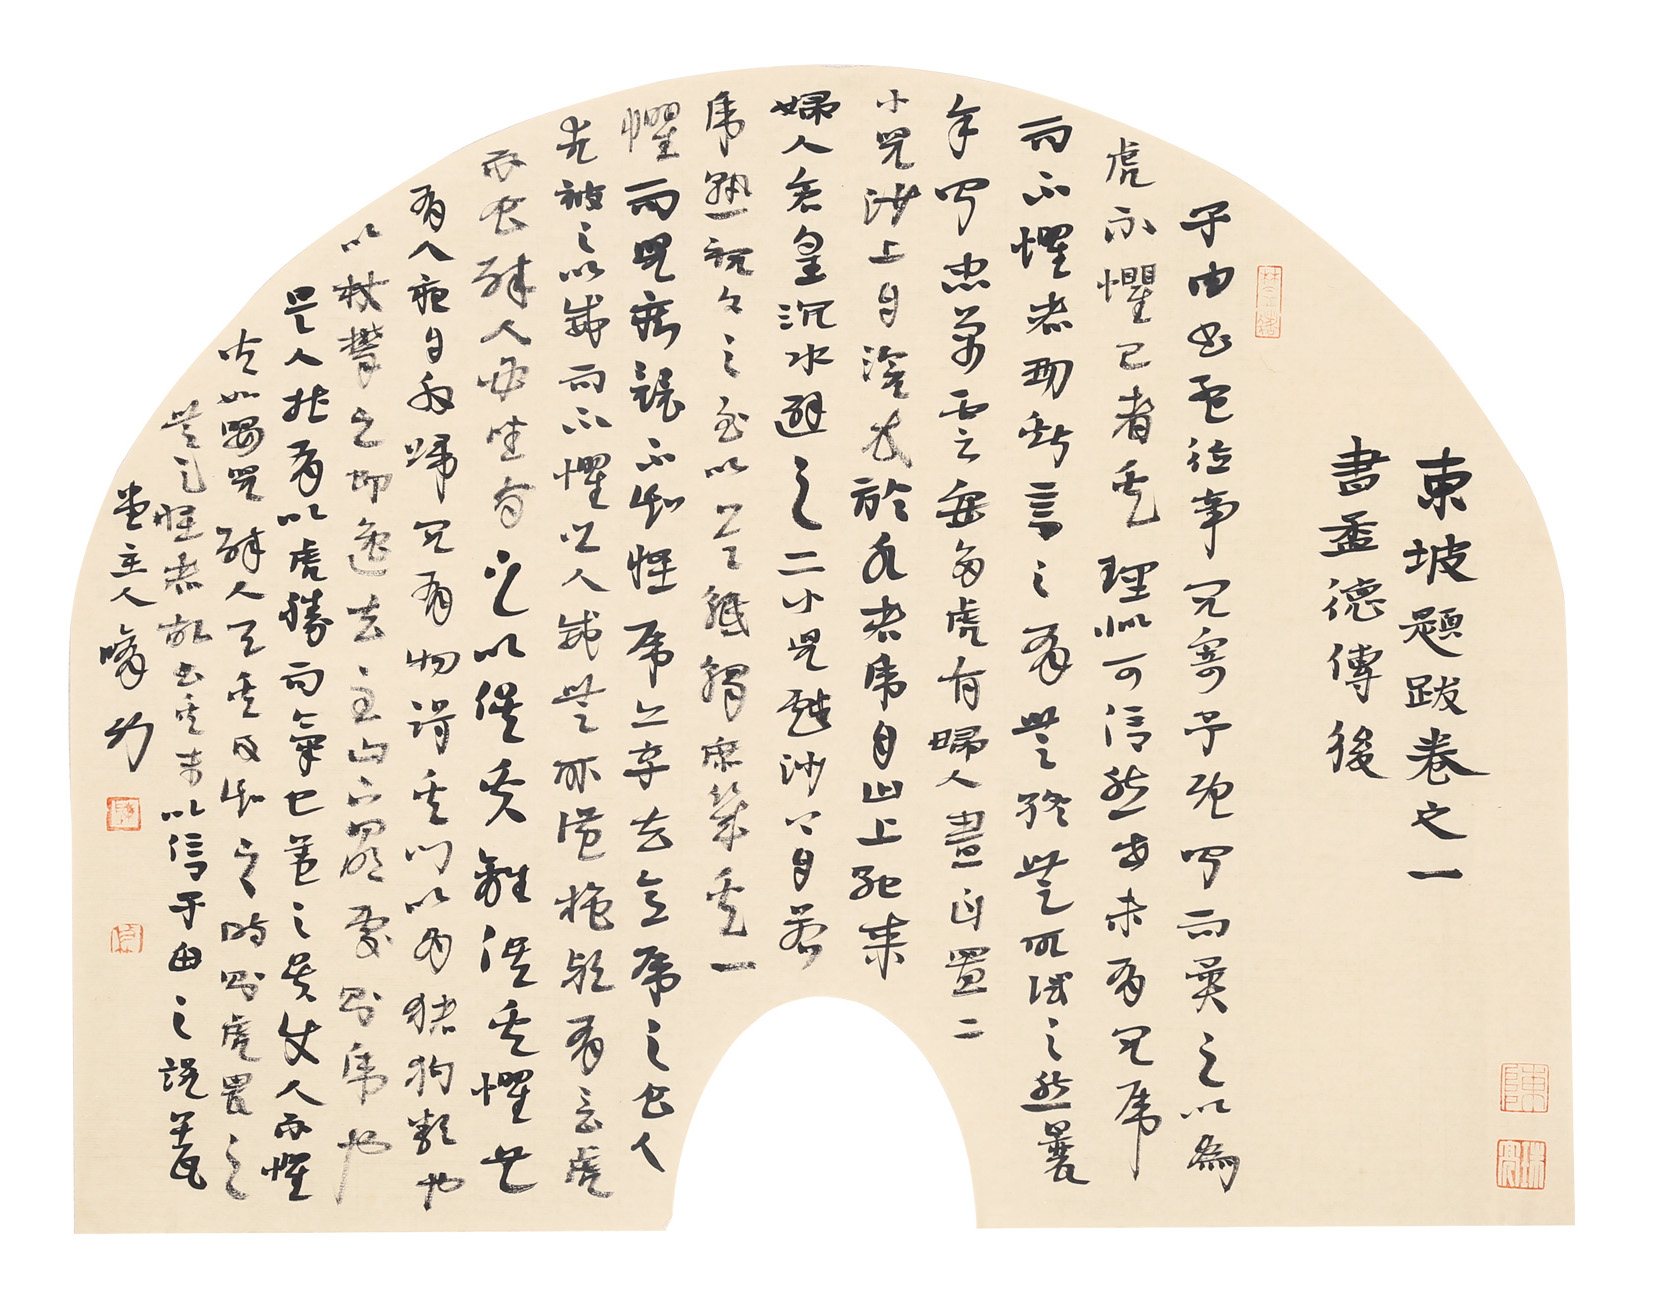 東坡題跋卷之一
書孟德傳後
子由书德事見寄予既聞而異之以為
虎不懼己者其理似可信然世未有見虎
而不懼者則斯言之有無終無所試之然曩
年聞忠萬雲安多虎有婦人晝日置二
小兒沙上自浣衣於水者虎自山上馳來
婦人倉皇沉水避之二小兒戲沙上自若
虎熟視久之至以首觝觸庶幾其一
懼而兒癡竟不知怪虎亦卒去意虎之食人
先被之以威而不懼之人威無所施歟有言虎
不食醉人必坐守之以俟其醒俟其懼也
有人夜自外歸見有物蹲其門以為猪狗類也
以杖擊之即逸去至山下月明處則虎也
是人非有以虎勝而氣已蓋之矣使人不懼
皆如嬰兒醉人與其及知之時則虎畏之
無足怪者故書其末以信子由之說
堂主人